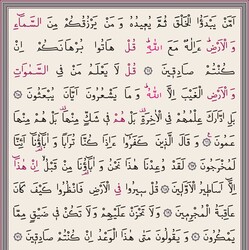 أَمَّن يَبْدَؤُا۟ ٱلْخَلْقَ ثُمَّ يُعِيدُهُۥ وَمَن يَرْزُقُكُم مِّنَ ٱلسَّمَآءِ
وَٱلْأَرْضِ أَءِلَٰهٌ مَّعَ ٱللَّهِ قُلْ هَاتُوا۟ بُرْهَٰنَكُمْ إِن
كُنتُمْ صَٰدِقِينَ قُل لَّا يَعْلَمُ مَن فِى ٱلسَّمَٰوَٰتِ
وَٱلْأَرْضِ ٱلْغَيْبَ إِلَّا ٱللَّهُ وَمَا يَشْعُرُونَ أَيَّانَ يُبْعَثُونَ
بَلِ ٱدَّٰرَكَ عِلْمُهُمْ فِى ٱلْءَاخِرَةِ بَلْ هُمْ فِى شَكٍّ مِّنْهَا بَلْ هُم مِّنْهَا
عَمُونَ وَقَالَ ٱلَّذِينَ كَفَرُوٓا۟ أَءِذَا كُنَّا تُرَٰبًا وَءَابَآؤُنَآ أَئِنَّا
لَمُخْرَجُونَ لَقَدْ وُعِدْنَا هَٰذَا نَحْنُ وَءَابَآؤُنَا مِن قَبْلُ إِنْ هَٰذَآ
إِلَّآ أَسَٰطِيرُ ٱلْأَوَّلِينَ قُلْ سِيرُوا۟ فِى ٱلْأَرْضِ فَٱنظُرُوا۟ كَيْفَ كَانَ
عَٰقِبَةُ ٱلْمُجْرِمِينَ وَلَا تَحْزَنْ عَلَيْهِمْ وَلَا تَكُن فِى ضَيْقٍ مِّمَّا
يَمْكُرُونَ وَيَقُولُونَ مَتَىٰ هَٰذَا ٱلْوَعْدُ إِن كُنتُمْ صَٰدِقِينَ